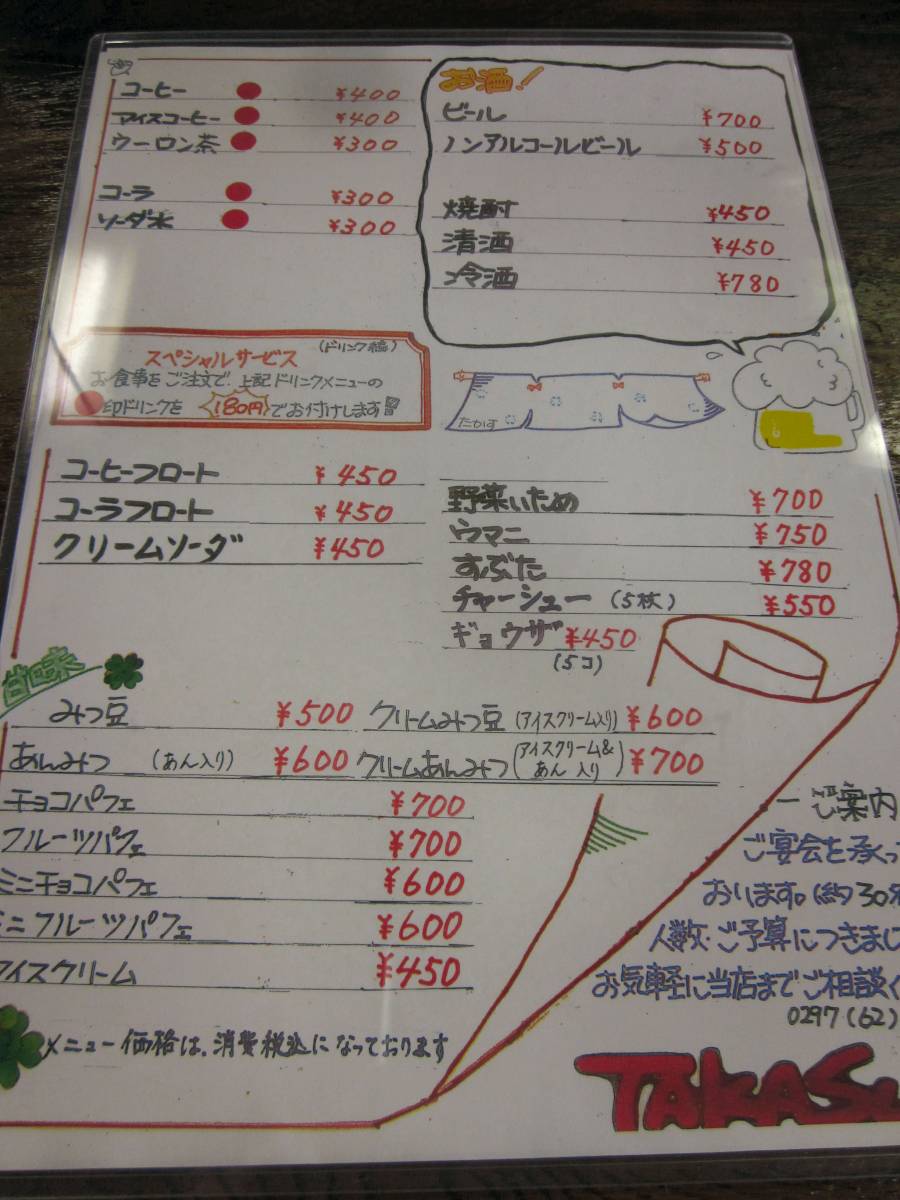 コーヒー ¥400
アイスコーヒー ¥400
ウーロン茶 ¥300
コーラ ¥300
ソーダ水 ¥300
お酒!
ビール ¥700
ノンアルコールビール ¥500
焼酎 ¥450
清酒 ¥450
冷酒 ¥780
スペシャルサービス (ドリンク編)
お食事をご注文で、上記ドリンクメニューの
印ドリンクを 180円 でお付けします!!!
たかす
コーヒーフロート ¥450
コーラフロート ¥450
クリームソーダ ¥450
野菜いため ¥700
ウマニ ¥750
すぶた ¥780
チャーシュー (5枚) ¥550
ギョウザ ¥450
(5コ)
甘味
みつ豆 ¥500 クリームみつ豆 (アイスクリーム入り) ¥600
あんみつ (あん入り) ¥600 クリームあんみつ (アイスクリーム& あん入り) ¥700
チョコパフェ ¥700
フルーツパフェ ¥700
ミニチョコパフェ ¥600
ミニフルーツパフェ ¥600
アイスクリーム ¥450
メニュー価格は、消費税込になっております
ー ご案内
ご宴会を承っ
おります。(約30名
人数・ご予算につきまし
お気軽に当店までご相談く
0297(62)
TAKAS